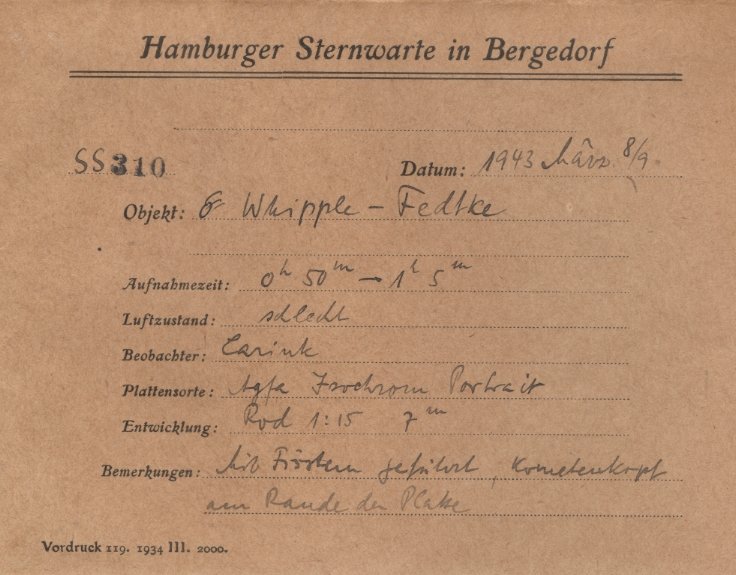 Hamburger Sternwarte in Bergedorf
SS310
Datum: 1943 März 8/9.
Objekt: ☄ Whipple – Fedtke
Aufnahmezeit: 0ʰ 50ᵐ – 1ʰ 5ᵐ
Luftzustand: schlecht
Beobachter: Larink
Plattensorte: Agfa Isochrom Portrait
Entwicklung: Rod 1:15 7ᵐ
Bemerkungen: Mit geführt, Kometenkopf
am Rande der Platte
Vordruck 119. 1934 III. 2000.